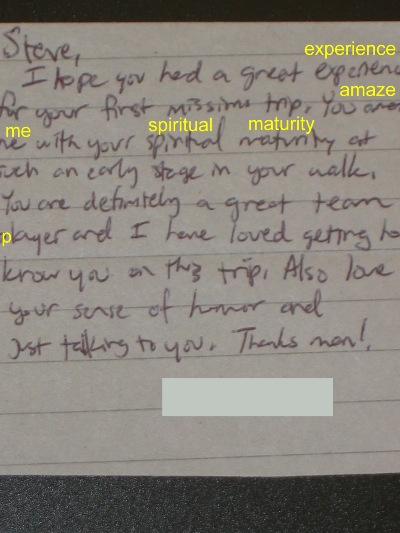 Steve,
experience
I hope you had a great experienc
amaze
for your first missions trip. You
me spiritual maturity
me with your spiritual maturity at
such an early stage in your walk.
You are definitely a great team
p
player and I have loved getting to
know you on this trip. Also love
your sense of humor and
just talking to you. Thanks man!